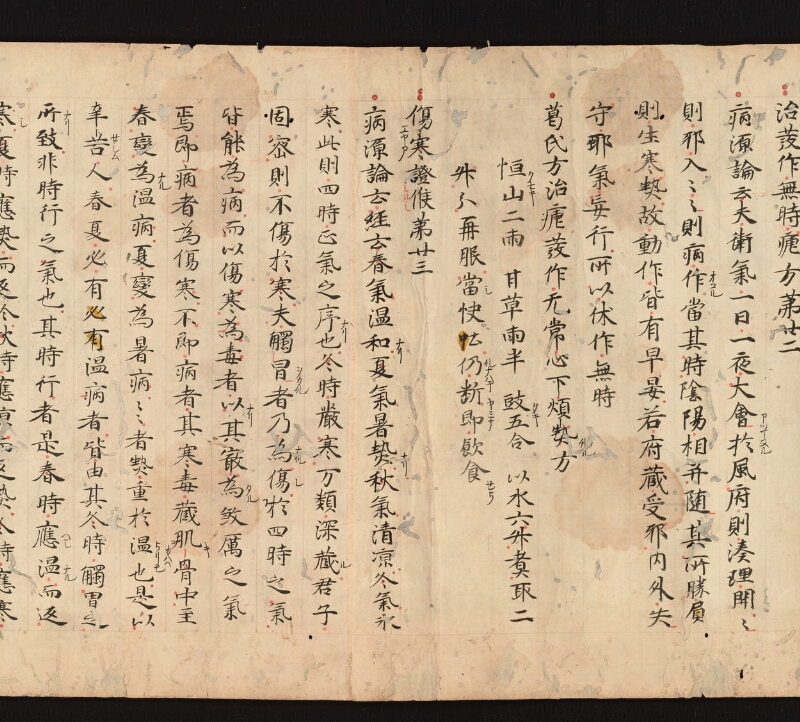 治蓛作無時瘧方第廿二
病源論云夫衛氣一日一夜大會於風府則湊理開〻
則邪入〻〻則病作當其時陰陽相并随其所勝屓
則生寒𤍠故動作皆有早晏若府蔵受邪内外失
守邪氣妄行所以休作無時
葛氏方治瘧蓛作无常心下煩𤍠方
恒山二兩 甘草兩半 豉五合 以水六升煮取二
升分再服當快仍断即飲食
傷寒證候第廿三
病源論云経云春氣温和夏氣暑𤍠秋氣清凉冬氣氷
寒此則四時正氣之序也冬時嚴寒万類深蔵君子
固密則不傷於寒夫觸冒者乃為傷於四時之氣
皆能為病而以傷寒為毒者以其㝡為敘厲之氣
焉即病者為傷寒不即病者其寒毒蔵肌骨中至
春變為温病夏變為暑病〻者𤍠重於温也是以
辛苦人春夏必有必有温病者皆由其冬時觸冒之
所致非時行之氣也其時行者是春時應温而返
寒夏時應𤍠而返冷秋時應凉而返𤍠冬時應寒